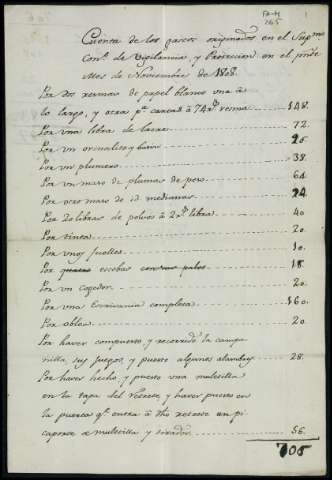 FA-M
265
Cuenta de los gastos originados en el Supmo
Conº de Vigilancia, y Proteccion en el
Mes de Noviembre de 1808.
Por dos resmas de papel blanco una á
lo largo, y otra pª cartas á 74 rs resma 148.
Por una libra de lacre 72.
Por un orinalito y baso
Por un plumero 38.
Por un mazo de plumas de peso 64
Por otro mazo de id medianas 24
Por 20 libras de polvos á 2 rs libra 40
Por tinta 20.
Por unos fuelles 10.
Por escobas con sus palos 18
Por un cogedor 20.
Por una Escrivania completa 160.
Por obleas 20.
Por haver compuesto y recorrido la campa
nilla, sus juegos, y puesto algunos alambres 28.
Por haver hecho y puesto una muletilla
en la tapa del Retrete, y haver puesto en
la puerta qe entra á dho retrete un pi
caporte de muletilla y tirador 56.
705